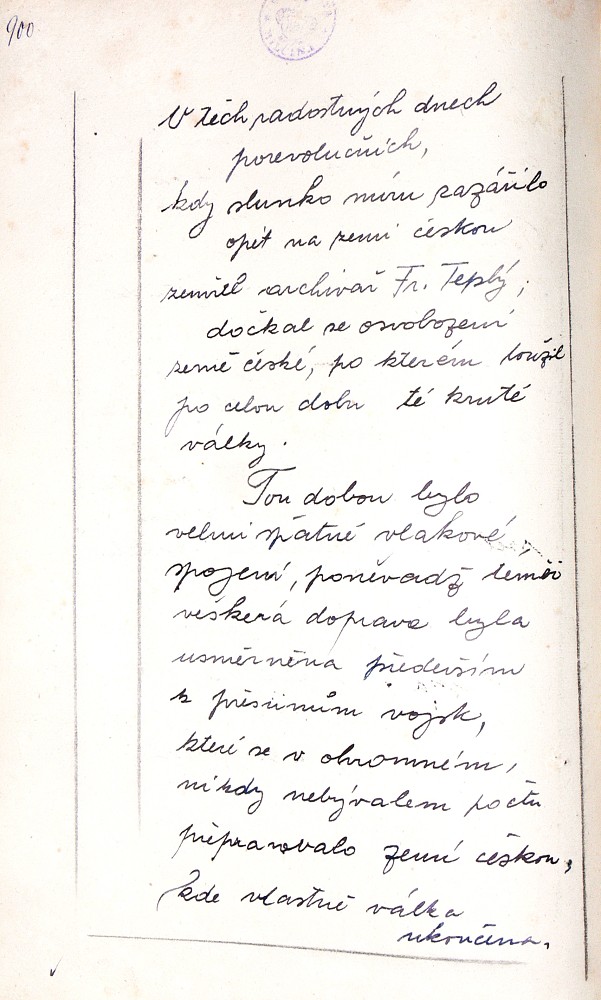 900
V těch radostných dnech
porevolučních,
kdy slunko míru zazářilo
opět na zemi českou
zemřel archivář Fr. Teplý,
dočkal se osvobození
země české, po kterém toužil
po celou dobu té kruté
války.
Tou dobou bylo
velmi špatné vlakové
spojení, poněvadž téměř
veškerá doprava byla
usměrněna především
k přesunům vojsk,
které se v ohromném,
nikdy nebývalem počtu
přepravovalo zemí českou,
kde vlastně válka
ukončena.